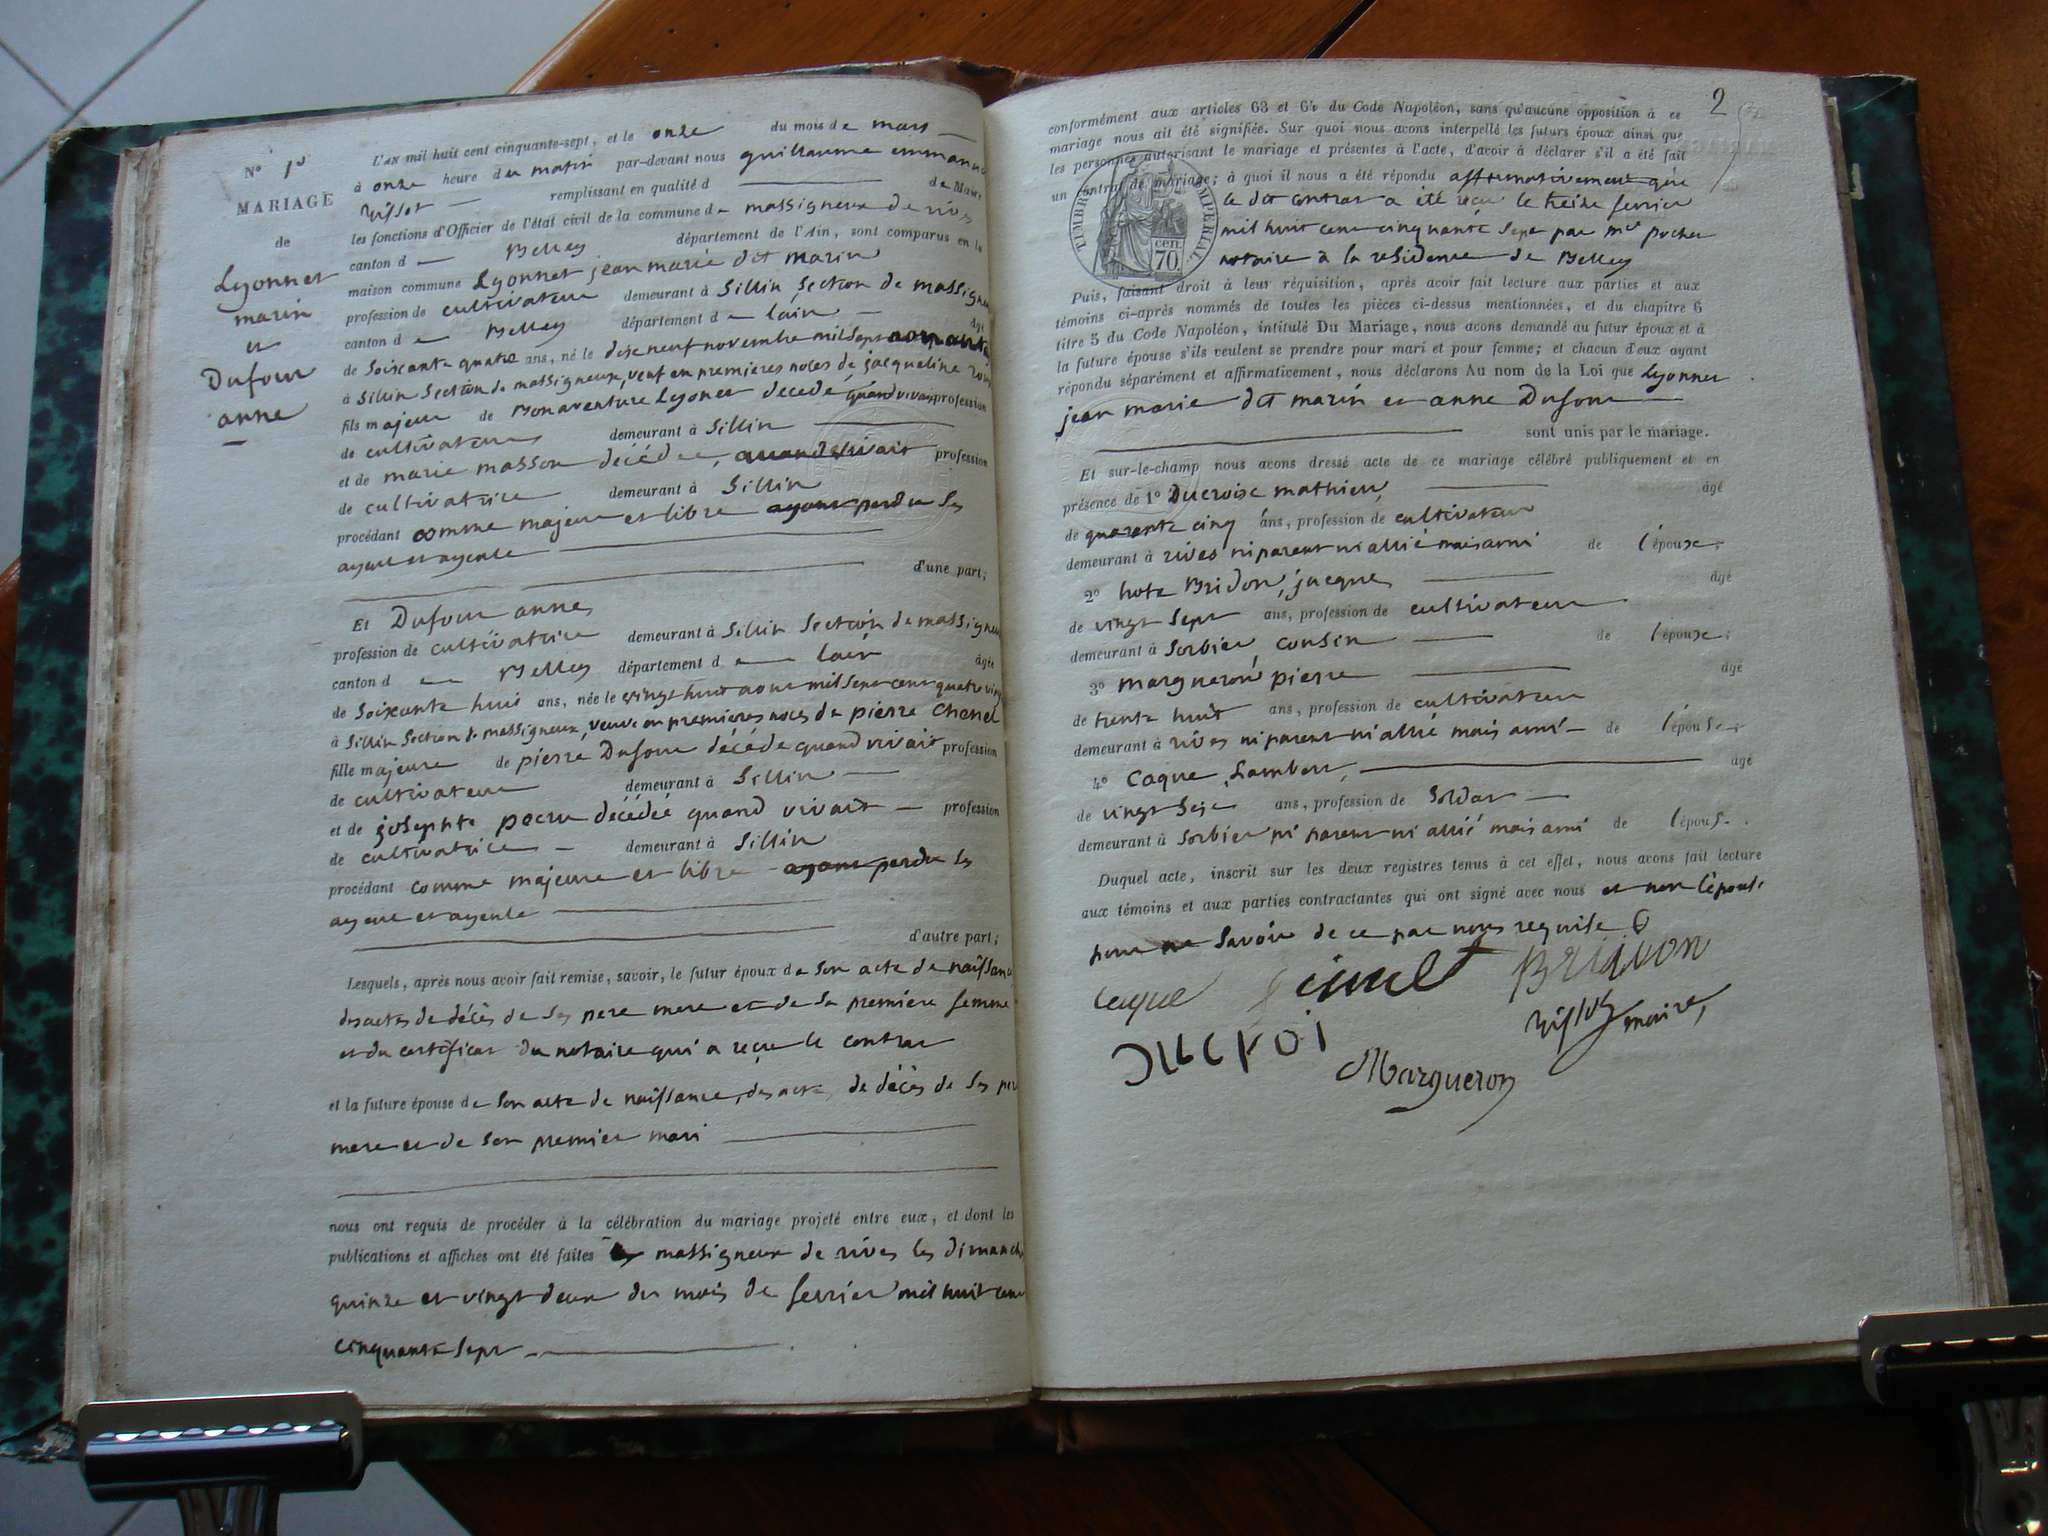 N° 1er
MARIAGE
de
Lyonnet
marin
et
Dufour
anne
L'AN mil huit cent cinquante-sept, et le onze du mois de mars
à onze heure du matin par-devant nous guillaume emmanuel
rissot remplissant en qualité d de Maire
les fonctions d'Officier de l'état civil de la commune de massigneux de rives
canton d Belley département de l'Ain, sont comparus en la
maison commune Lyonnet jean marie dit marin
profession de cultivateur demeurant à Sillin Section de massigneux
canton d Belley département d lain âgé
de Soixante quatre ans, né le dixneuf novembre mil sept
à Sillin Section de massigneux, veuf en premieres noces de jacqueline
fils majeur de Bonaventure Lyonet décédé, quand vivait profession
de cultivateur demeurant à Sillin
et de marie masson décédée, quand vivait profession
de cultivatrice demeurant à Sillin
procédant comme majeur et libre ayant perdu Ses
ayeux et ayeule
d'une part;
Et Dufour anne
profession de cultivatrice demeurant à Sillin Section de massigneux
canton d Belley département d lain âgée
de Soixante huit ans, née le vingt huit aout mil sept cent quatre vingt
à Sillin Section de massigneux, veuve en premieres noces de pierre Chenel
fille majeure de pierre Dufour décédé quand vivait profession
de cultivateur demeurant à Sillin
et de josephte décédée quand vivait profession
de cultivatrice demeurant à Sillin
procédant comme majeure et libre ayant perdu Ses
ayeux et ayeule
d'autre part;
Lesquels, après nous avoir fait remise, savoir, le futur époux de Son acte de naissance
des actes de décès de Ses pere mere et de Sa premiere femme
et du certificat du notaire qui a reçu le contrat
et la future épouse de Son acte de naissance, des actes de décès de Ses pere
mere et de Son premier mari
nous ont requis de procéder à la célébration du mariage projeté entre eux, et dont les
publications et affiches ont été faites massigneux de rives les dimanche
quinze et vingt deux du mois de fevrier mil huit cent
cinquante Sept
2
conformément aux articles 63 et 64 du Code Napoléon, sans qu'aucune opposition à ce
mariage nous ait été signifiée. Sur quoi nous avons interpellé les futurs époux ainsi que
les personnes autorisant le mariage et présentes à l'acte, d'avoir à déclarer s'il a été fait
un contrat de mariage; à quoi il nous a été répondu affirmativement que
le dit contrat a été reçu le treize fevrier
mil huit cent cinquante Sept par me pochet
notaire à la residence de Belley
TIMBRE IMPERIAL
70 cen.
Puis, faisant droit à leur réquisition, après avoir fait lecture aux parties et aux
témoins ci-après nommés de toutes les pièces ci-dessus mentionnées, et du chapitre 6
titre 5 du Code Napoléon, intitulé Du Mariage, nous avons demandé au futur époux et à
la future épouse s'ils veulent se prendre pour mari et pour femme; et chacun d'eux ayant
répondu séparément et affirmativement, nous déclarons Au nom de la Loi que Lyonnet
jean marie dit marin et anne Dufour
sont unis par le mariage.
Et sur-le-champ nous avons dressé acte de ce mariage célébré publiquement et en
présence de 1° Ducroise mathieu, âgé
de quarante cinq ans, profession de cultivateur
demeurant à rives ni parent ni allié mais ami de l'époux;
2° hote Bridon, jacques âgé
de vingt Sept ans, profession de cultivateur
demeurant à Sorbier cousin de l'époux;
3° margueron pierre âgé
de trente huit ans, profession de cultivateur
demeurant à rives ni parent ni allié mais ami de l'épouse;
4° Caque Lambert, âgé
de vingt Seje ans, profession de Soldat
demeurant à Sorbier ni parent ni allié mais ami de l'épouse.
Duquel acte, inscrit sur les deux registres tenus à cet effet, nous avons fait lecture
aux témoins et aux parties contractantes qui ont signé avec nous et non l'épouse
pour ne Savoir de ce par nous requise
Caque BRIDON
rissot maire,
DUCROI
Margueron